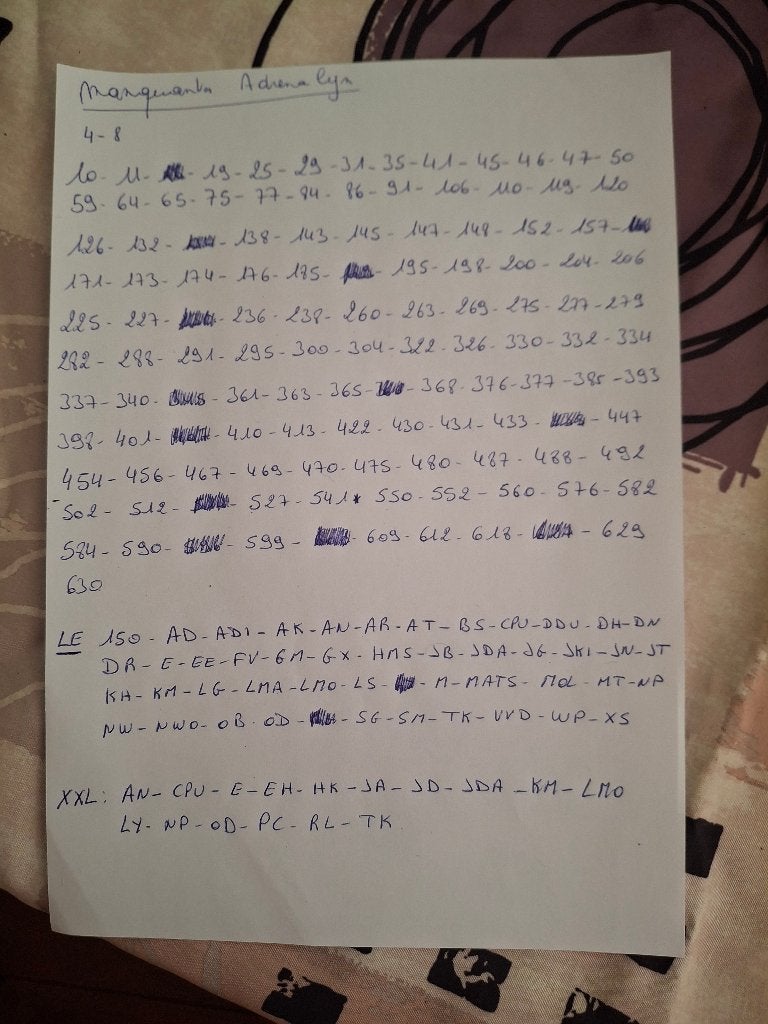 Manquants Adrenalyn
4-8
10- 11- - 19- 25- 29- 31- 35- 41- 45- 46- 47- 50
59- 64- 65- 75- 77- 84- 86- 91- 106- 110- 119- 120
126- 132- - 138- 143- 145- 147- 148- 152- 157-
171- 173- 174- 176- 185- - 195- 198- 200- 204- 206
225- 227- - 236- 238- 260- 263- 269- 275- 277- 279
282- 288- 291- 295- 300- 304- 322- 326- 330- 332- 334
337- 340- - 361- 363- 365- - 368- 376- 377- 385- 393
398- 401- - 410- 413- 422- 430- 431- 433- - 447
454- 456- 467- 469- 470- 475- 480- 487- 488- 492
502- 512- - 527- 541- 550- 552- 560- 576- 582
584- 590- - 599- - 609- 612- 618- - 629
630
LE 150- AD- ADI- AK- AN- AR- AT- BS- CPU- DDU- DH- DN
DR- E- EE- FV- GM- GX- HMS- JB- JDA- JG- JKI- JN- JT
KH- KM- LG- LMA- LMO- LS- - M- MATS- MOL- MT- NP
NW- NWO- OB- OD- - SG- SM- TK- VVD- WP- XS
XXL: AN- CPU- E- EH- HK- JA- JD- JDA- KM- LMO
LY- NP- OD- PC- RL- TK